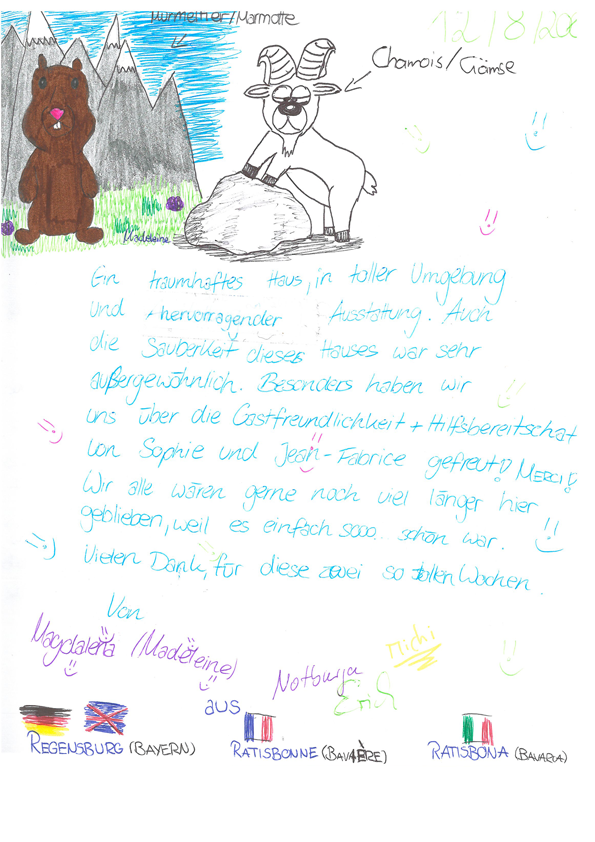 Murmeltier/Marmotte
12/8/20
Chamois/Gämse
Madeleine
Ein traumhaftes Haus, in toller Umgebung
und + hervorragender Ausstattung. Auch
die Sauberkeit dieses Hauses war sehr
außergewöhnlich. Besonders haben wir
uns über die Gastfreundlichkeit + Hilfsbereitschaft
von Sophie und Jean-Fabrice gefreut! MERCI!
Wir alle wären gerne noch viel länger hier
geblieben, weil es einfach sooo.. schön war.
Vielen Dank, für diese zwei so tollen Wochen.
Von
Magdalena (Madeleine)
Notburga
Michi
Erich
aus
REGENSBURG (BAYERN) RATISBONNE (BAVIÈRE) RATISBONA (BAVARIA)